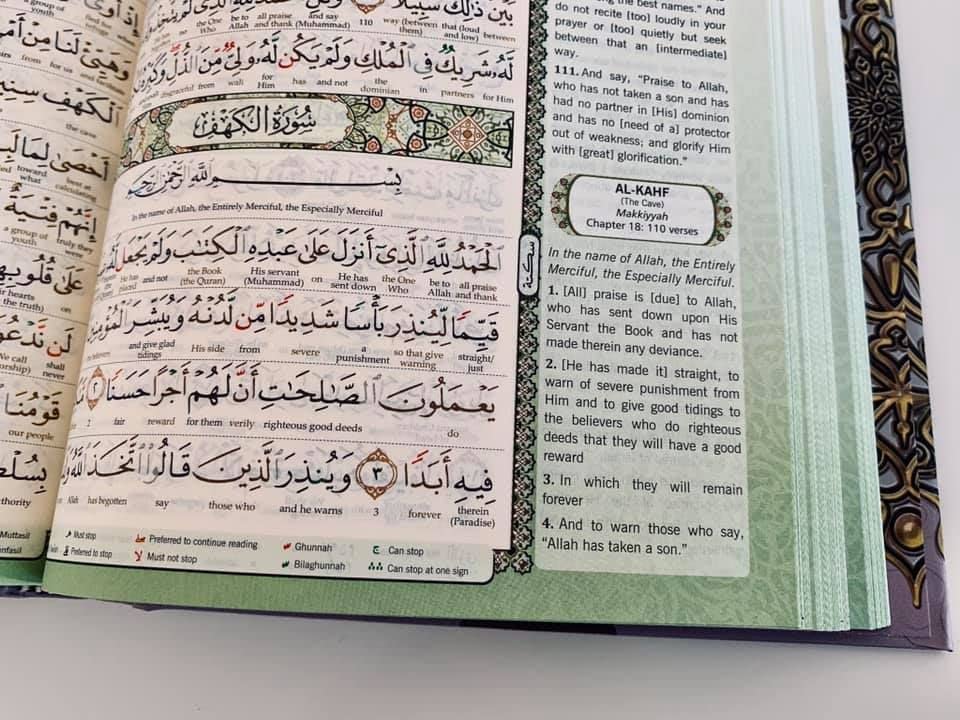 بَيْنَ ذَٰلِكَ سَبِيلًا
the One be to all praise and say 110 way (between that (loud between
Who Allah and thank (Muhammad) and low)
لَّهُۥ شَرِيكٌ فِى ٱلْمُلْكِ وَلَمْ يَكُن لَّهُۥ وَلِىٌّ مِّنَ ٱلذُّلِّ وَكَبِّرْهُ
disgraceful from wali for Him has and not the dominian in partners for Him
سُورَةُ الكَهْفِ
بِسْمِ ٱللَّهِ ٱلرَّحْمَٰنِ ٱلرَّحِيمِ
In the name of Allah, the Entirely Merciful, the Especially Merciful
ٱلْحَمْدُ لِلَّهِ ٱلَّذِىٓ أَنزَلَ عَلَىٰ عَبْدِهِ ٱلْكِتَٰبَ وَلَمْ يَجْعَل لَّهُۥ
and not the Book His servant on He has the One be to all praise
(the Quran) (Muhammad) sent down Who Allah and thank
قَيِّمًا لِّيُنذِرَ بَأْسًا شَدِيدًا مِّن لَّدُنْهُ وَيُبَشِّرَ ٱلْمُؤْمِنِينَ
believers and give glad His side from severe a so that give straight/
tidings punishment warning just
يَعْمَلُونَ ٱلصَّٰلِحَٰتِ أَنَّ لَهُمْ أَجْرًا حَسَنًا ٢
2 fair reward for them verily righteous good deeds do
فِيهِ أَبَدًا ٣ وَيُنذِرَ ٱلَّذِينَ قَالُوا۟ ٱتَّخَذَ ٱللَّهُ
Allah has begotten say those who and he warns 3 forever therein
(Paradise)
Must stop Preferred to continue reading Ghunnah Can stop
Preferred to stop Must not stop Bilaghunnah Can stop at one sign
سكتة
the best names." And
do not recite [too] loudly in your
prayer or [too] quietly but seek
between that an [intermediate]
way.
111. And say, "Praise to Allah,
who has not taken a son and has
had no partner in [His] dominion
and has no [need of a] protector
out of weakness; and glorify Him
with [great] glorification."
AL-KAHF
(The Cave)
Makkiyyah
Chapter 18: 110 verses
In the name of Allah, the Entirely
Merciful, the Especially Merciful.
1. [All] praise is [due] to Allah,
who has sent down upon His
Servant the Book and has not
made therein any deviance.
2. [He has made it] straight, to
warn of severe punishment from
Him and to give good tidings to
the believers who do righteous
deeds that they will have a good
reward
3. In which they will remain
forever
4. And to warn those who say,
"Allah has taken a son."
a group of
youth
from for us
the cave
أَحْصَىٰ لِمَا
toward best at
what calculating
إِنَّهُمْ فِتْيَةٌ
a group of truly they
youth were
عَلَىٰ قُلُوبِهِمْ
their hearts on
the truth)
لَن نَّدْعُوَا۟
We call shall
never
قَوْمُنَا
our people
بِسُلْطَٰنٍ
authority by
Muttasil